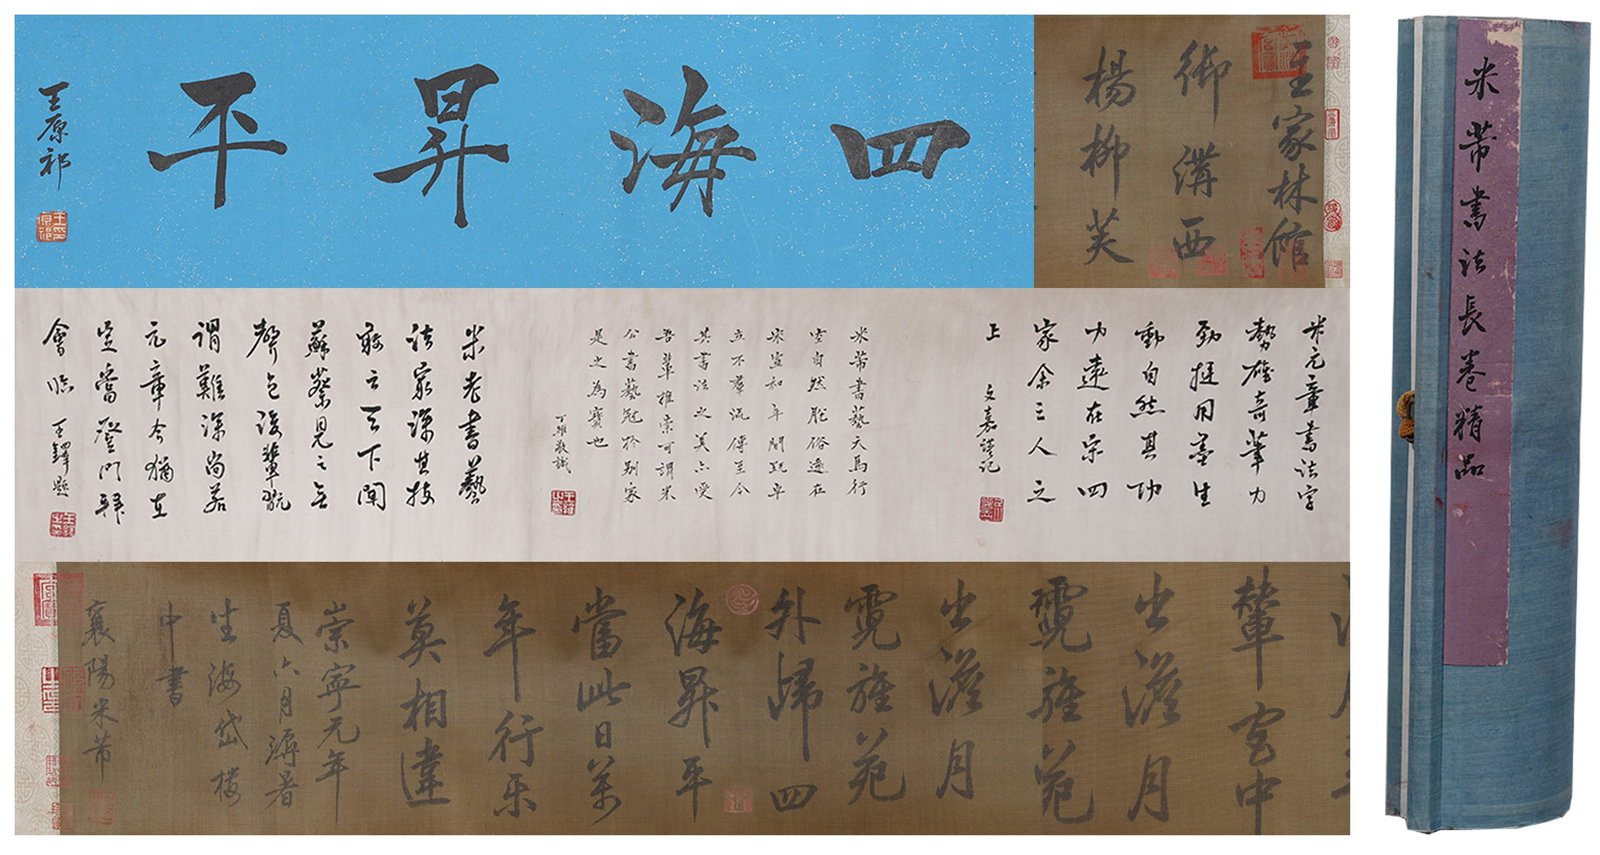 四海昇平
王原祁
主家林館
御溝西
楊柳芙
米元章書法字
勢雄奇筆力
勁挺用墨生
動自然其功
力遠在宋四
家余三人之
上
文嘉謹記
米芾書藝天馬行
空自然脫俗遠在
宋宣和年間既卓
立不羣流傳至今
其書法之美六受
吾輩推崇可謂米
公書藝冠於別家
是之為寶也
王雅敬識
米老書藝
法家深其技
蘇蔡見之無
聲色後輩玩
謂難深尚若
元章今猶在
定當登門拜
會 王鐸題
輦宮中
出澄月
霓旌苑
出澄月
霓旌苑
外歸四
海昇平
當此日萬
年行樂
莫相違
崇寧元年
夏六月溽暑
坐海岱樓
中書
襄陽米芾
米芾書法長卷精品